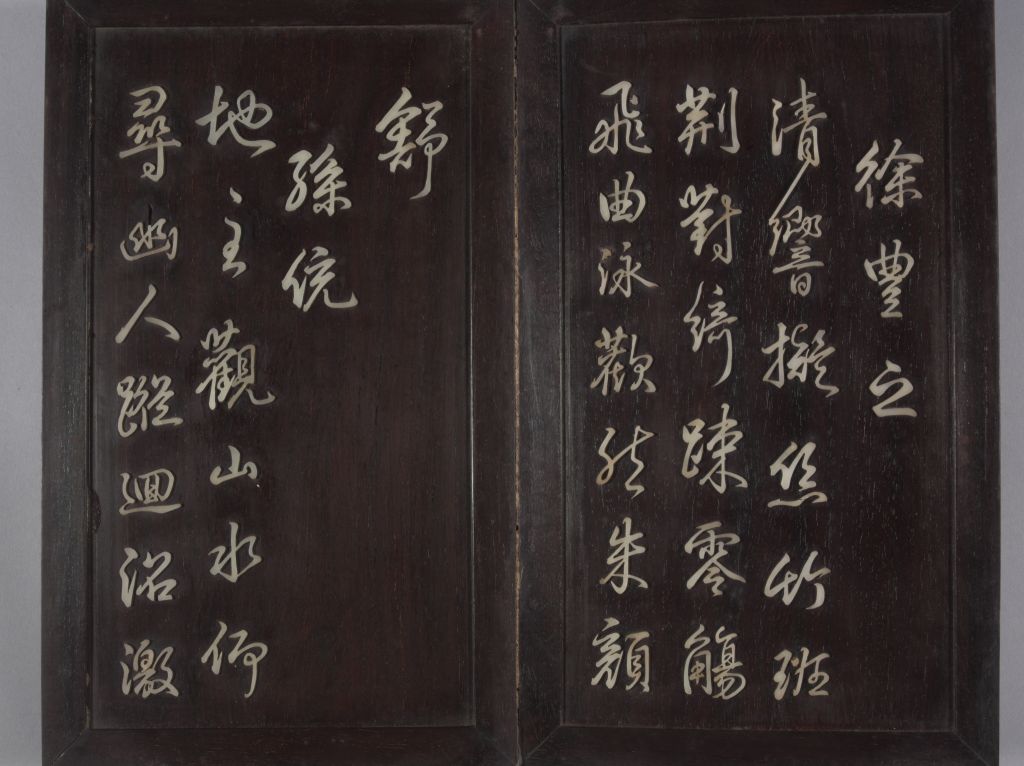 徐豐之
清響擬絲竹班
荆對綺踈零觴
飛曲泳歡然朱顏
舒
孫統
地主觀山水仰
尋幽人蹤迴沼激